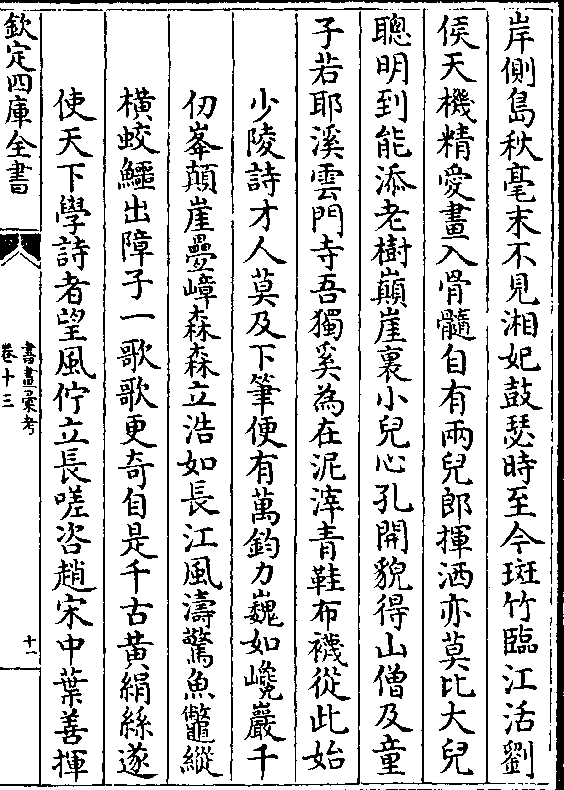 岸側島秋毫末不見湘妃鼓瑟時至今斑竹臨江活劉
侯天機精愛畫入骨髓自有兩兒郎揮洒亦莫比大兒
聰明到能添老樹巔崖裏小兒心孔開貌得山僧及童
子若耶溪雲門寺吾獨奚為在泥滓青鞋布襪從此始
少陵詩才人莫及下筆便有萬鈞力巍如巉巖千
仞峯顛崖疊嶂森森立浩如長江風濤驚魚鼈縱
橫蛟鱷出障子一歌歌更奇自是千古黃絹絲遂
使天下學詩者望風佇立長嗟咨趙宋中葉善揮
欽定四庫全書
書畫彙考
卷十三
十一